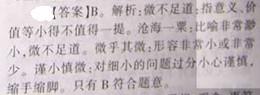 【答案】B。解析：微不足道：指意义、价
值等小得不值得一提。沧海一粟：比喻非常渺
小，微不足道。微乎其微：形容非常小或非常
少。谨小慎微：对细小的问题过分小心谨慎，
缩手缩脚。只有 B 符合题意。